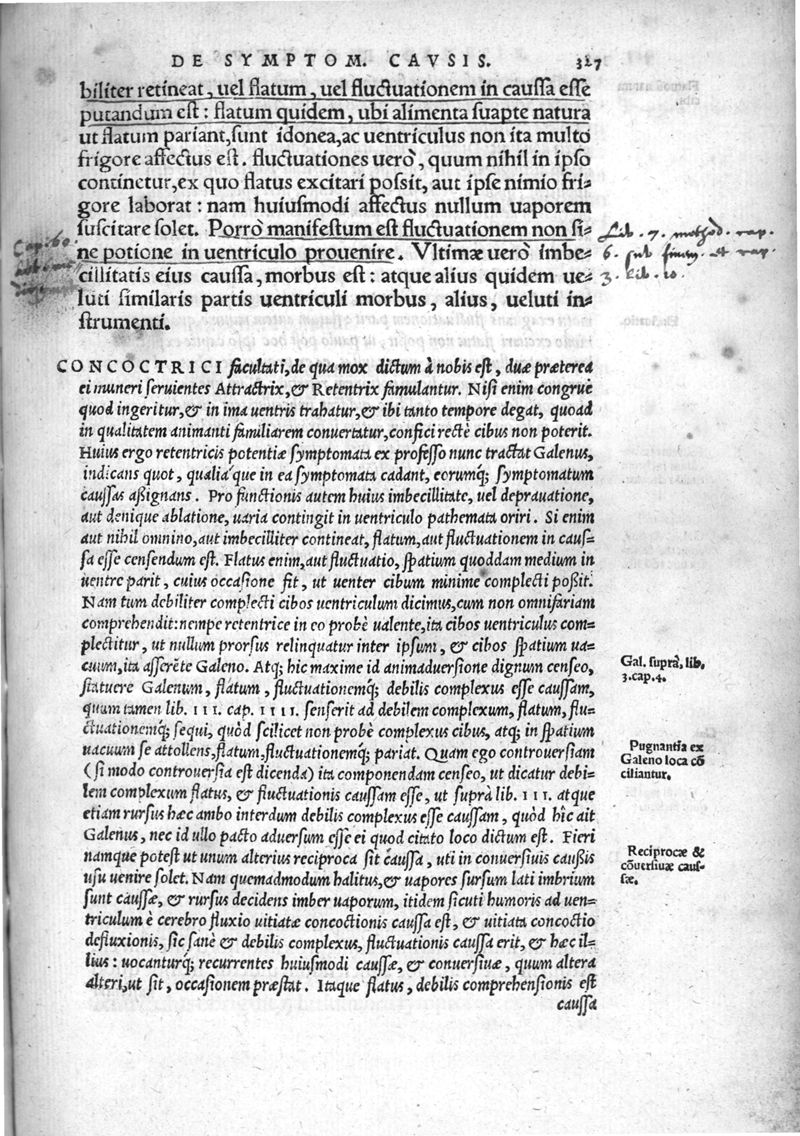 DE SYMPTOM. CAVSIS. 327
biliter retineat, uel flatum, uel fluctuationem in caussa esse
putandum est: flatum quidem, ubi alimenta suapte natura
ut flatum pariant, sunt idonea, ac uentriculus non ita multo
frigore affectus est. fluctuationes uerò, quum nihil in ipso
continetur, ex quo flatus excitari possit, aut ipse nimio fri-
gore laborat: nam huiusmodi affectus nullum uaporem
suscitare solet. Porrò manifestum est fluctuationem non si-
ne potione in uentriculo prouenire. Vltimæ uerò imbe-
cillitatis eius caussa, morbus est: atque alius quidem ue-
luti similaris partis uentriculi morbus, alius, ueluti in-
strumenti.
Lib. 7. method. cap.
6. sub finem. et cap.
3. lib. 10.
CONCOCTRICI facultati, de qua mox dictum à nobis est, duæ præterea
ei muneri seruientes Attractrix, & Retentrix famulantur. Nisi enim congruè
quod ingeritur, & in ima uentris trahatur, & ibi tanto tempore degat, quoad
in qualitatem animanti familiarem conuertatur, confici rectè cibus non poterit.
Huius ergo retentricis potentiæ symptomata ex professo nunc tractat Galenus,
indicans quot, qualia'que in ea symptomata cadant, eorumq; symptomatum
caussas aßignans. Pro functionis autem huius imbecillitate, uel deprauatione,
aut denique ablatione, uaria contingit in uentriculo pathemata oriri. Si enim
aut nihil omnino, aut imbecilliter contineat, flatum, aut fluctuationem in caus-
sa esse censendum est. Flatus enim, aut fluctuatio, spatium quoddam medium in
uentre parit, cuius occasione fit, ut uenter cibum minime complecti poßit.
Nam tum debiliter complecti cibos uentriculum dicimus, cum non omnifariam
comprehendit: nempe retentrice in eo probè ualente, ita cibos uentriculus com-
plectitur, ut nullum prorsus relinquatur inter ipsum, & cibos spatium ua-
cuum, ita asserẽte Galeno. Atq; hic maxime id animaduersione dignum censeo,
statuere Galenum, flatum, fluctuationemq; debilis complexus esse caussam,
quam tamen lib. III. cap. IIII. senserit ad debilem complexum, flatum, flu-
ctuationemq; sequi, quòd scilicet non probè complexus cibus, atq; in spatium
uacuum se attollens, flatum, fluctuationemq; pariat. Quam ego controuersiam
(si modo controuersia est dicenda) ita componendam censeo, ut dicatur debi-
lem complexum flatus, & fluctuationis caussam esse, ut suprà lib. III. atque
etiam rursus hæc ambo interdum debilis complexus esse caussam, quòd hîc ait
Galenus, nec id ullo pacto aduersum esse ei quod citato loco dictum est. Fieri
namque potest ut unum alterius reciproca sit caussa, uti in conuersiuis caußis
usu uenire solet. Nam quemadmodum halitus, & uapores sursum lati imbrium
sunt caussæ, & rursus decidens imber uaporum, itidem sicuti humoris ad uen-
triculum è cerebro fluxio uitiatæ concoctionis caussa est, & uitiata concoctio
defluxionis, sic sanè & debilis complexus, fluctuationis caussa erit, & hæc il-
lius: uocanturq; recurrentes huiusmodi caussæ, & conuersiuæ, quum altera
alteri, ut sit, occasionem præstat. Itaque flatus, debilis comprehensionis est
caussa
Gal. suprà. lib.
3. cap. 4.
Pugnantia ex
Galeno loca cõ
ciliantur.
Reciprocæ &
cõuersiuæ caus-
sæ.